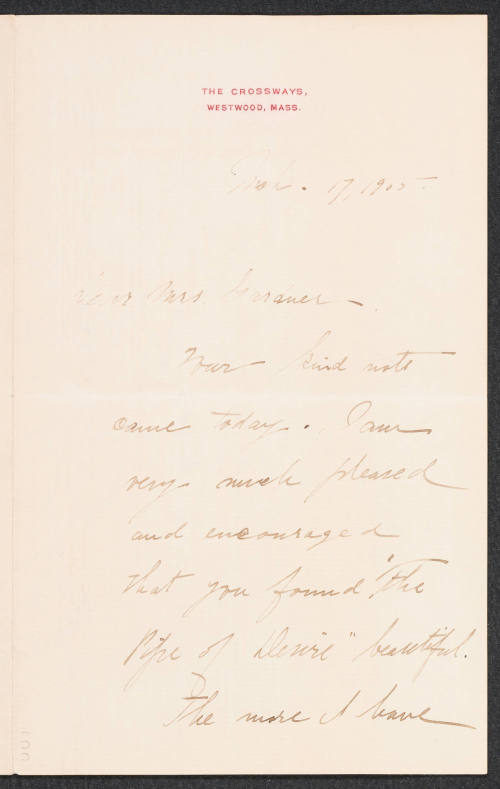 THE CROSSWAYS,
WESTWOOD, MASS.
17, 1905.
Dear Mrs Gardner -
Your kind note
came today. I am
very much pleased
and encouraged
that you found "The
Pipe of Desire" beautiful.
The more I have